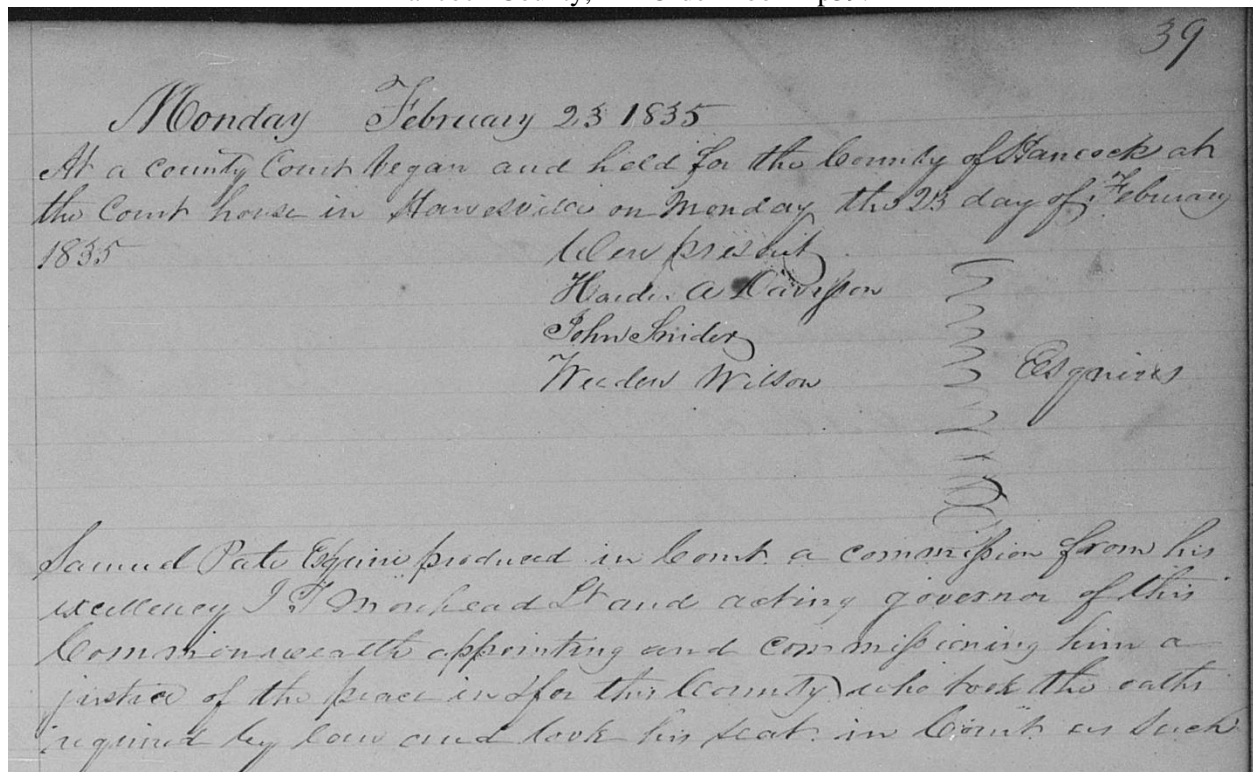 39
Monday February 23 1835
At a county Court began and held for the County of Hancock at
the Court house in Hawesville on Monday the 23 day of February
1835
Were present
Hardin A Davisson
John Snider
Weeden Wilson
Esquires
Samuel Pate Esquire produced in Court a commission from his
excellency J T Morehead Lt and acting governor of this
Commonwealth appointing and commissioning him a
justice of the peace in & for this County who took the oaths
required by law and took his seat in Court as such